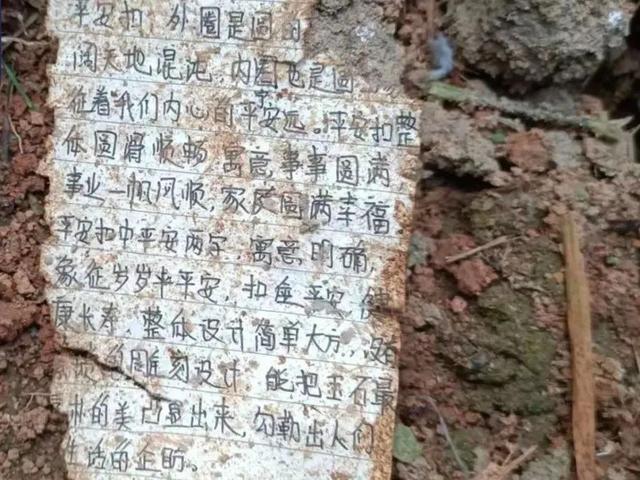 平安扣 外圈是圆
阔天地混沌，内圈也是圆
征着我们内心的平安远。平安扣整
体圆滑顺畅 寓意，事事圆满，
事业一帆风顺，家庭圆满幸福。
平安扣中平安两字，寓意明确，
象征岁岁平平安，扣住平安 健
康长寿 整体设计简单大方，没
雕刻设计 能把玉石最
的美凸显出来，勾勒出人们
生活的企盼。